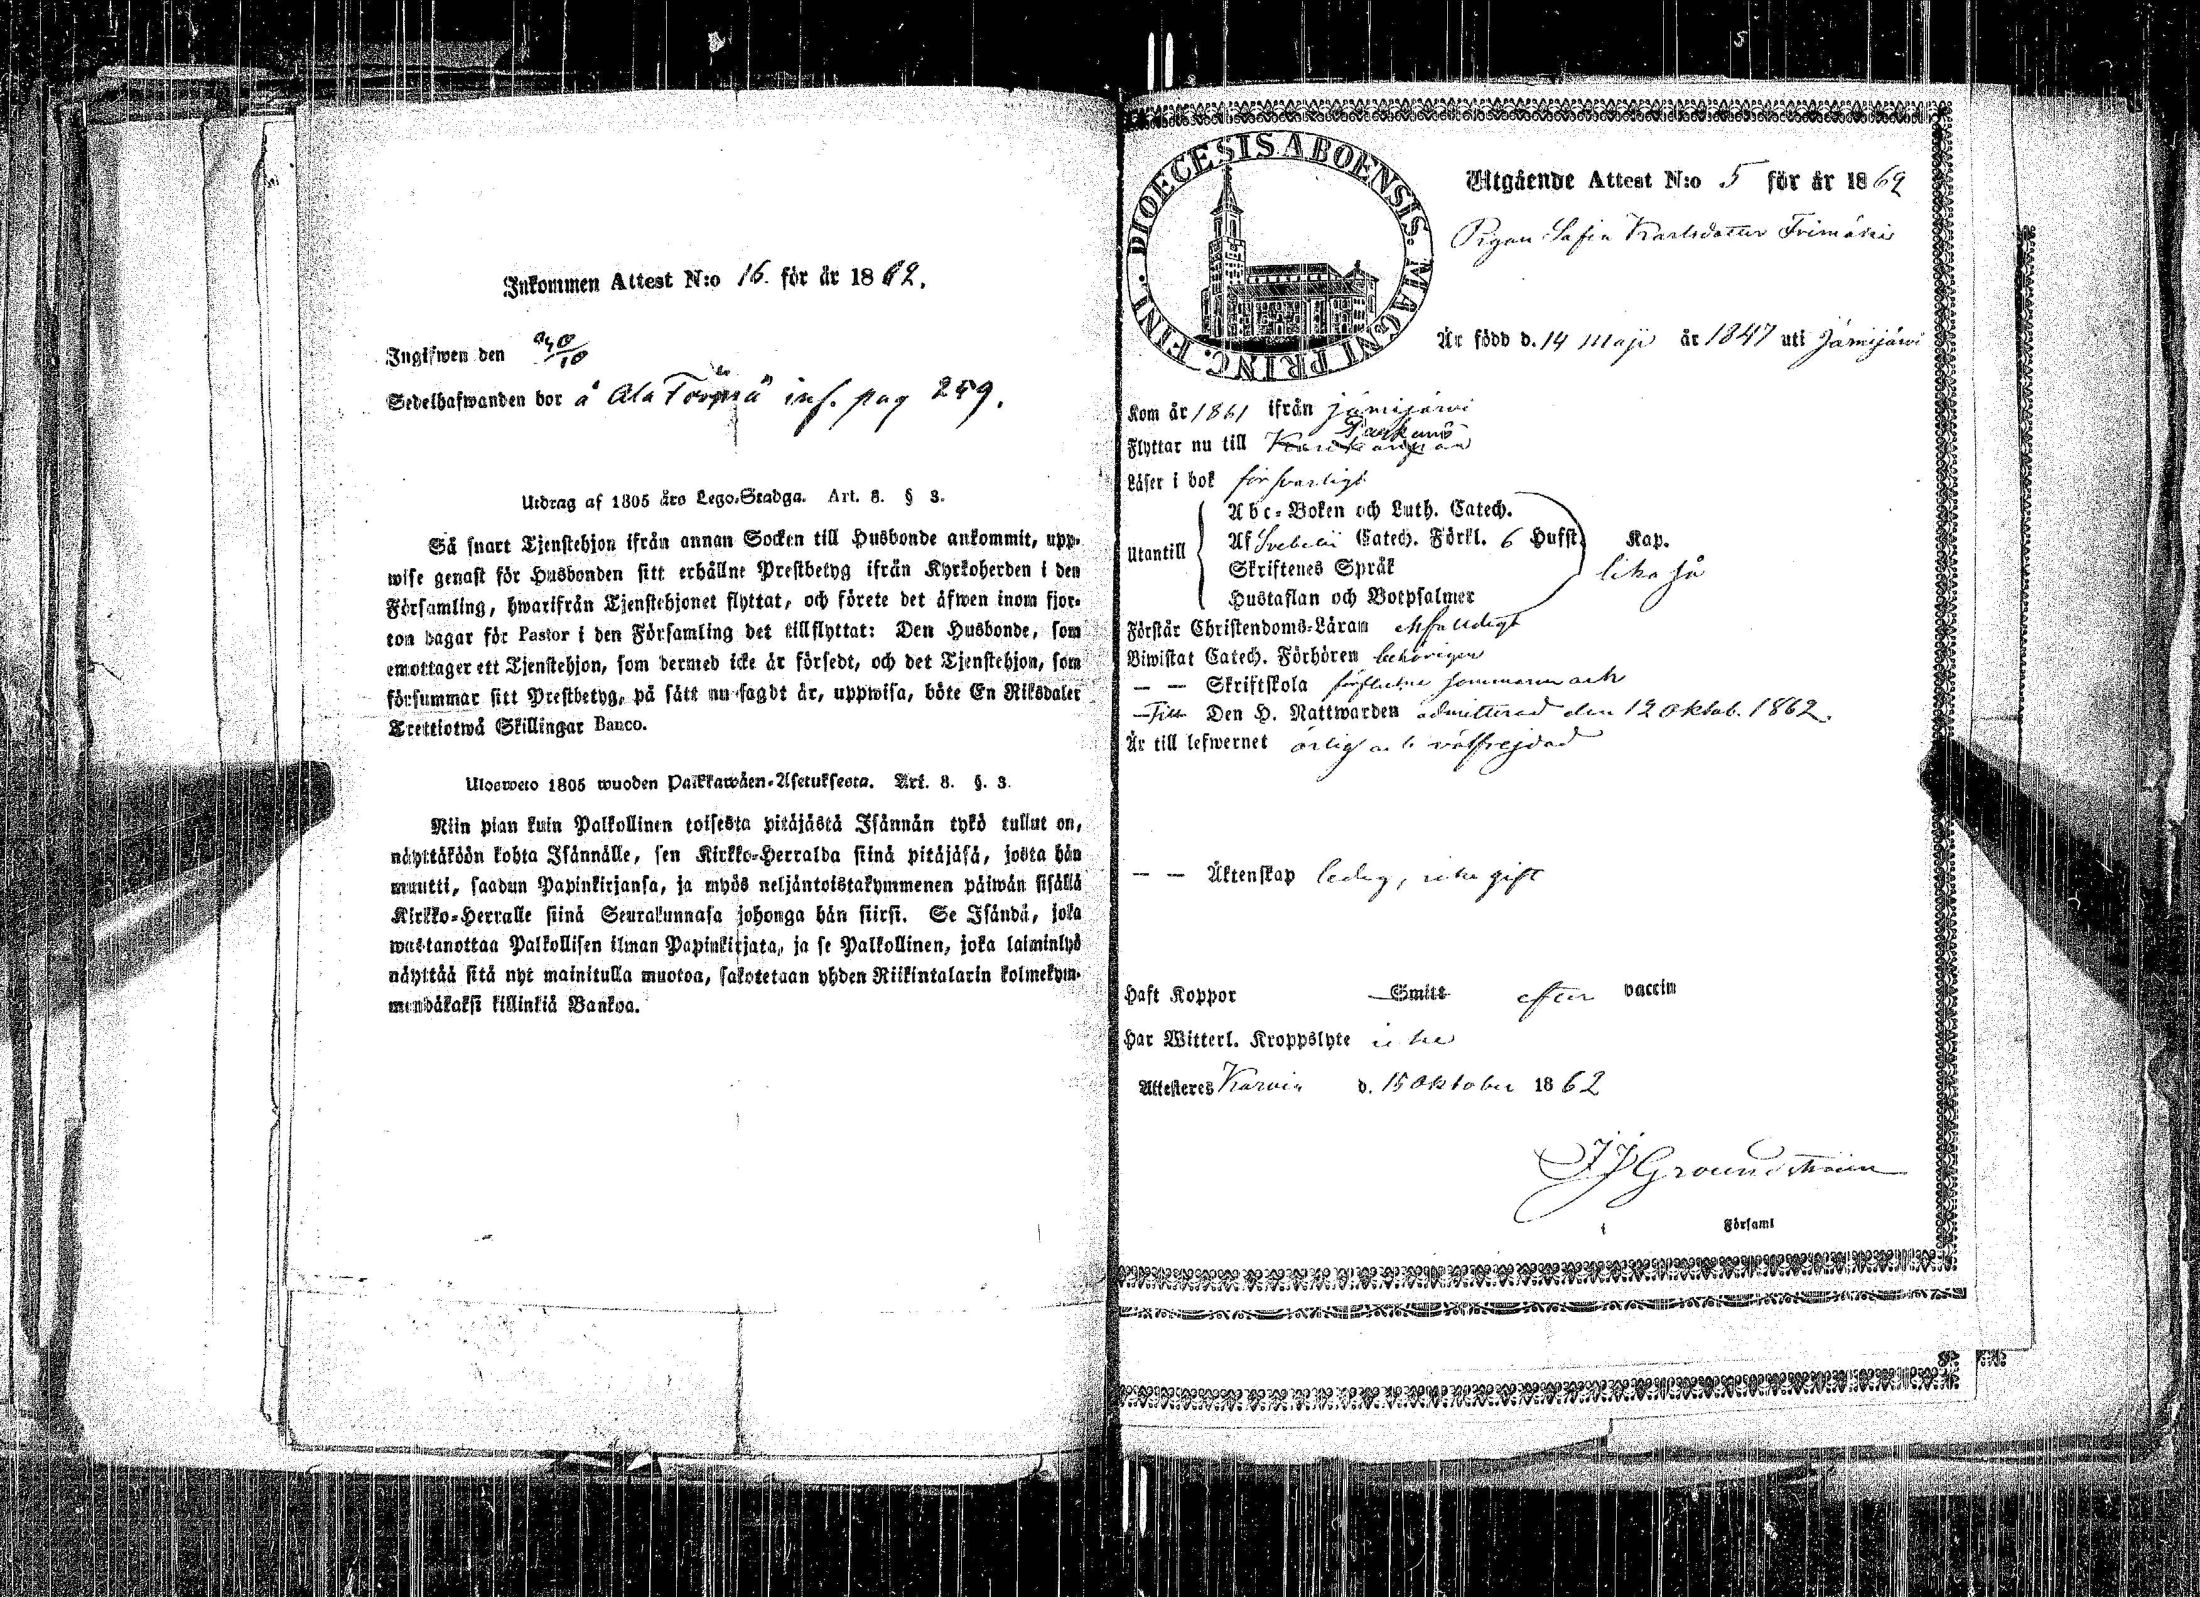 Inkommen Attest N:o 16. för år 1862.
Ingifwen den 20/10
Sedelhafwanden bor å Ala Törmä inf. pag 259.
Utdrag af 1805 års Lego-Stadga. Art. 8. § 3.
Så snart Tjenstehjon ifrån annan Socken till Husbonde ankommit, upp-
wise genast för Husbonden sitt erhållne Prestbetyg ifrån Kyrkoherden i den
Församling, hwarifrån Tjenstehjonet flyttat, och förete det äfwen inom fjor-
ton dagar för Pastor i den Församling det tillflyttat: Den Husbonde, som
emottager ett Tjenstehjon, som dermed icke är försedt, och det Tjenstehjon, som
försummar sitt Prestbetyg, på sätt nu sagdt är, uppwisa, böte En Riksdaler
Trettiotwå Skillingar Banco.
Ulosweto 1805 wuoden Palkkawäen-Asetuksesta. Art. 8. §. 3.
Niin pian kuin Palkollinen toisesta pitäjästä Isännän tykö tullut on,
näyttäköön kohta Isännälle, sen Kirkko-Herralda siinä pitäjäsä, josta hän
muutti, saadun Papinkirjansa, ja myös neljäntoistakymmenen päiwän sisällä
Kirkko-Herralle siinä Seurakunnasa johonga hän siirsi. Se Isändä, joka
wastanottaa Palkollisen ilman Papinkirjata, ja se Palkollinen, joka laiminlyö
näyttää sitä nyt mainitulla muotoa, sakotetaan yhden Riikintalarin kolmekym-
mendäkaksi killinkiä Bankoa.
DIOECESIS ABOENSIS. MAGNI PRINC. FINL.
Utgående Attest N:o 5 för år 1862
Pigan Sofia Karlsdotter
Är född d. 14 Maji år 1847 uti Jämijärvi
Kom år 1861 ifrån Jämijärvi
Parkano
Flyttar nu till
Läser i bok försvarligt
Utantill
Abc-Boken och Luth. Catech.
Af Svebelii Catech. Förkl. 6 Hufst. Kap.
Skriftenes Språk lika så
Hustaflan och Botpsalmer
Förstår Christendoms-Läran enfaldigt
Biwistat Catech. Förhören behörigen
— — Skriftskola förflutne sommaren och
Till Den H. Nattwarden admitterad den 12 Oktob. 1862.
Är till lefwernet ärlig och välfrejdad
— — Äktenskap ledig, icke gift
Haft Koppor Smitt efter vaccin
Har Witterl. Kroppslyte icke
Attesteres Karvia d. 15 Oktober 1862
J J Groundstroem
i Församl